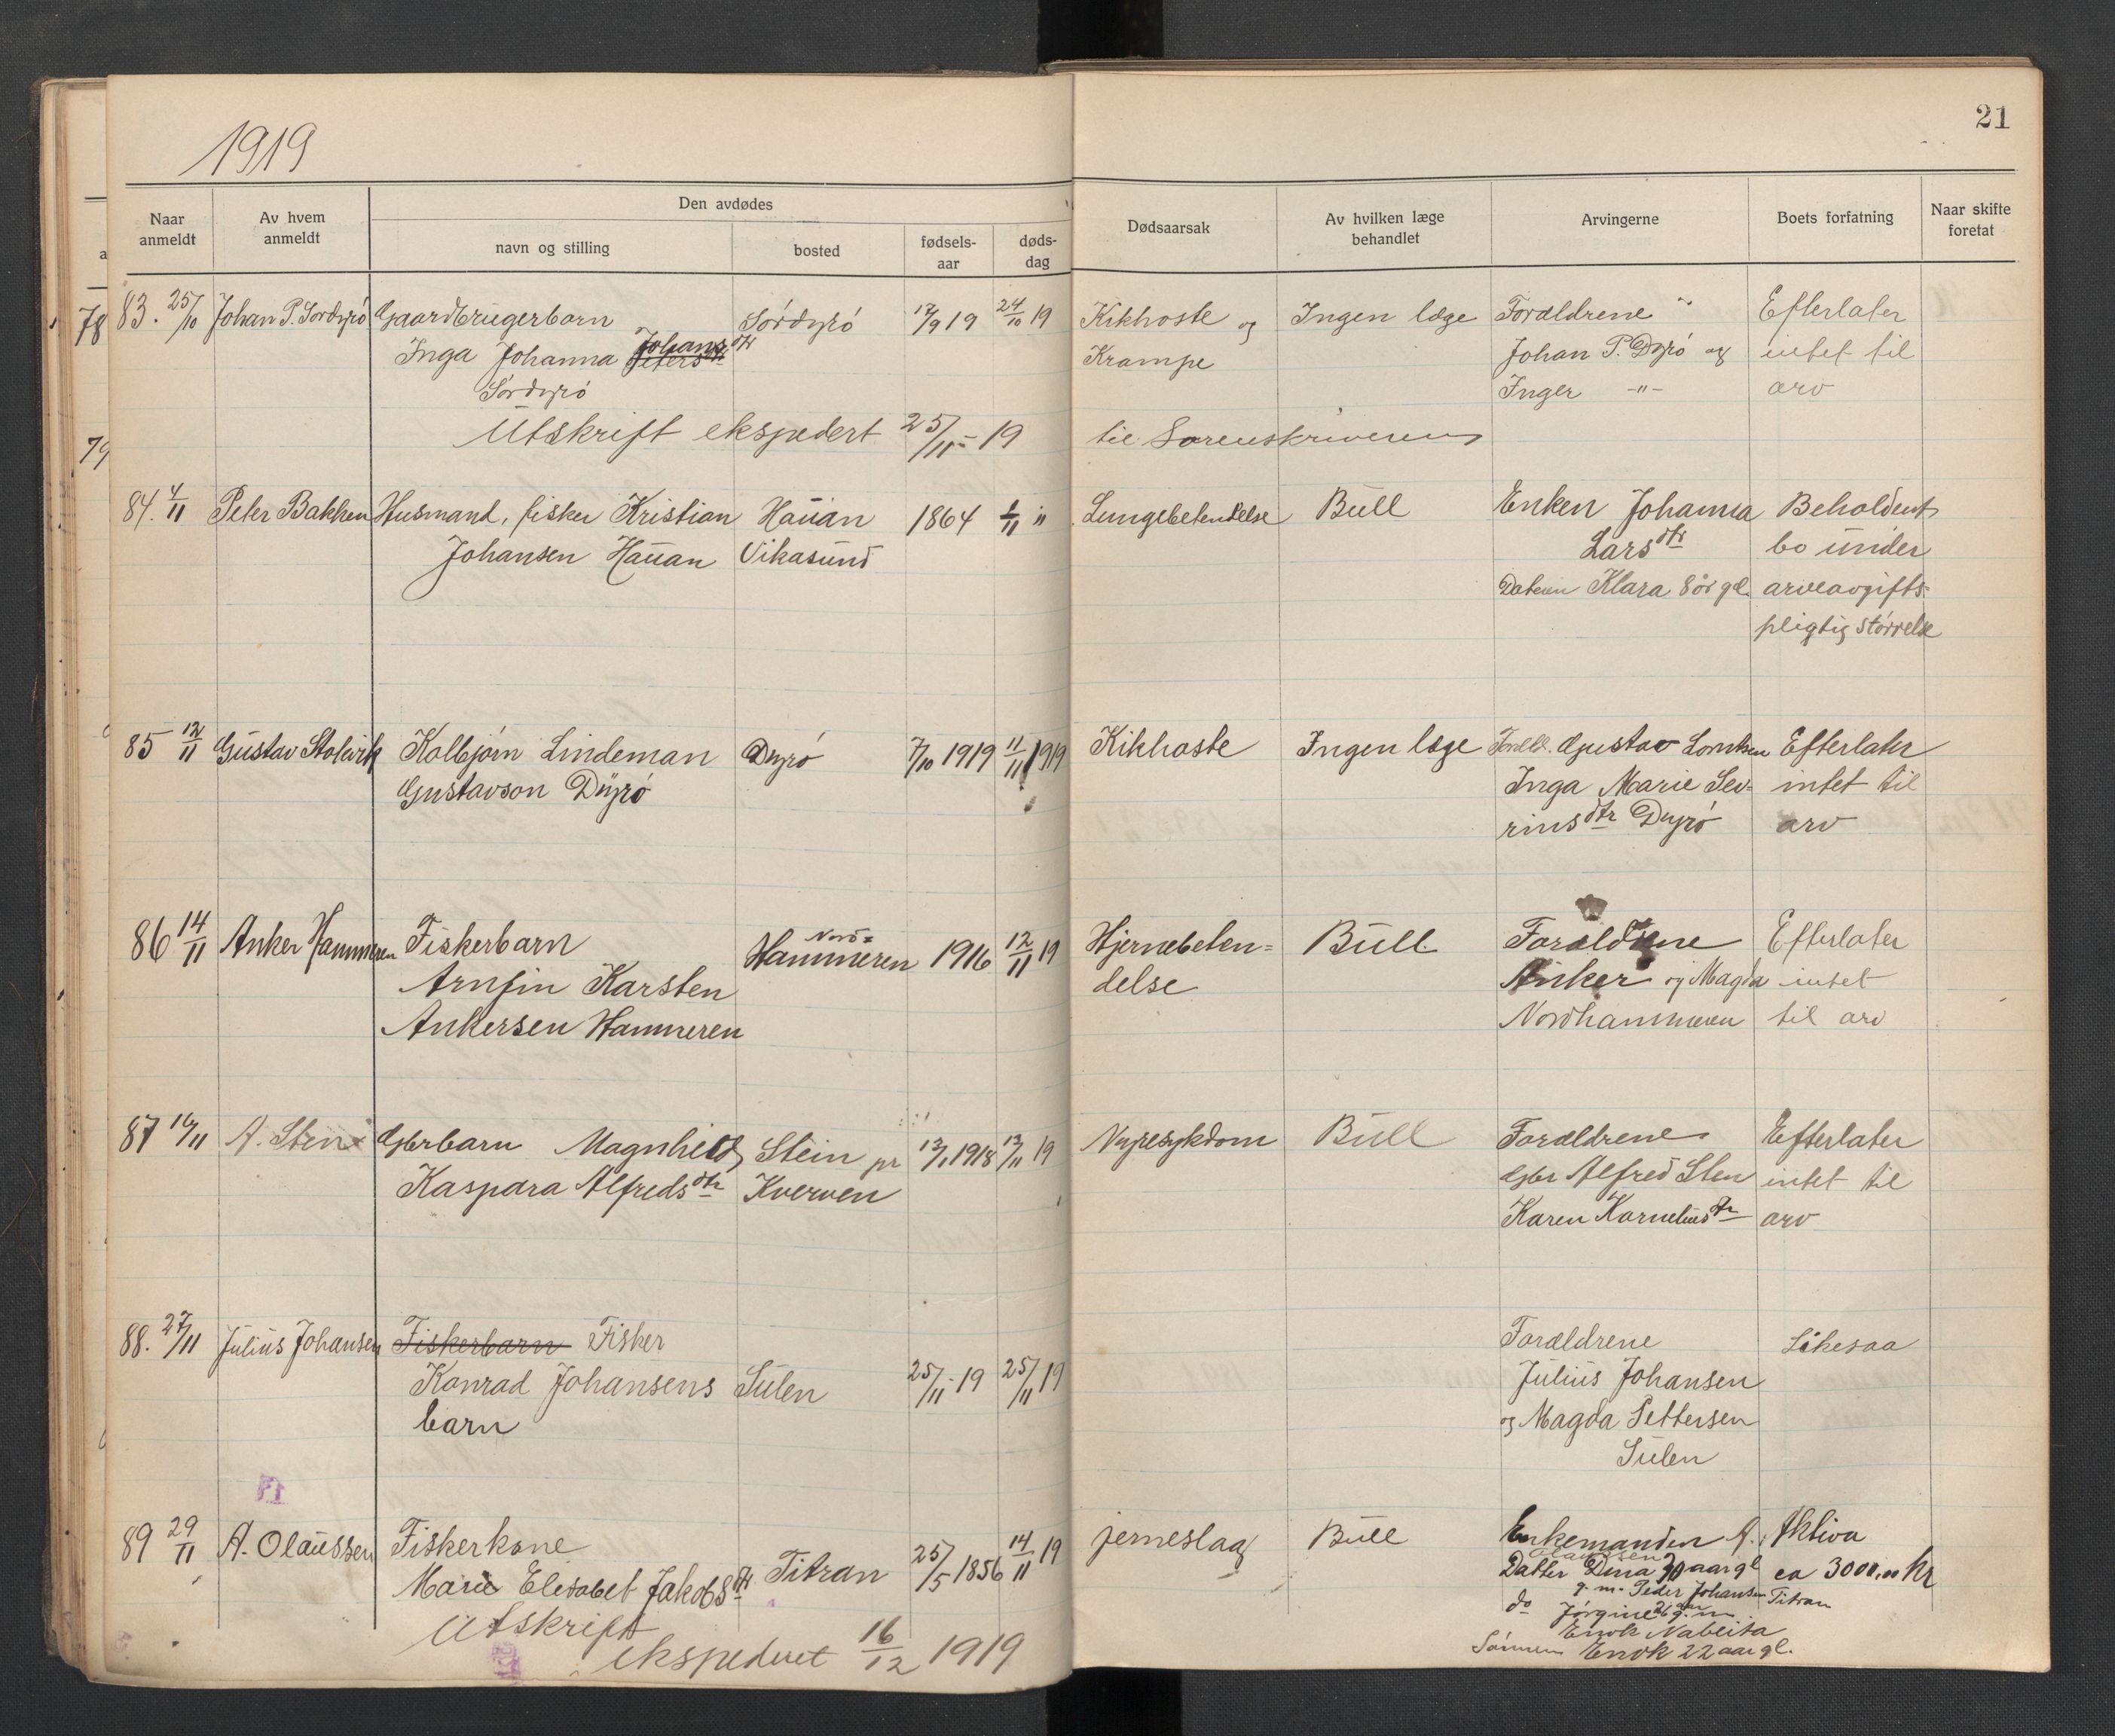 1919
21
Naar anmeldt
Av hvem anmeldt
Den avdødes
navn og stilling
bosted
fødsels-aar
døds-dag
Dødsaarsak
Av hvilken læge behandlet
Arvingerne
Boets forfatning
Naar skifte foretat
78
79
83. 25/10 Johan P. Sørdyrö Gaardbrugerbarn Sørdyrö 17/9 19 24/10 19 Kikhoste og Ingen læge Forældrene Efterlater
Inga Johanna Peters Johans dtr Krampe Johan P. Dyrö og intet til
Sørdyrö Inger -"- arv
Utskrift ekspedert 25/11 - 19 til Sorenskriveren
84. 4/11 Peter Bakken Husmand, fisker Kristian Hauan 1864 1/11 " Lungebetendelse Bull Enken Johanna Beholdent
Johansen Hauan Vikasund Lars dtr bo under
Datteren Klara 8 år gl. arveavgifts-
pligtig størrelse
85 12/11 Gustav Stolvik Kolbjørn Lindeman Dyrö 7/10 1919 11/11 1919 Kikhoste Ingen læge Foreld. Gustav Efterlater
Gustavson Dyrö Inga Marie Sev- intet til
rins dtr Dyrö arv
86 14/11 Anker Hammeren Fiskerbarn Nord- Hammeren 1916 12/11 19 Hjernebeten= Bull Forældrene Efterlater
Arnfin Karsten delse Anker og Magda intet
Ankersen Hammeren Nordhammeren til arv
87 14/11 A. Sten Gbrbarn Magnhild Stein pr 13/1 1918 13/11 19 Nyresykdom Bull Forældrene Efterlater
Kaspara Alfreds dtr Kverven Gbr Alfred Sten intet til
Karen Kornelius dtr arv
88. 27/11 Julius Johansen Fiskerbarn Fisker Forældrene Likesaa
Konrad Johansens Sulen 25/11 - 19 25/11 19 Julius Johansen
barn og Magda Pettersen
Sulen
89 29/11 A. Olaussen Fiskerkone Titran 25/5 1856 14/11 19 jerneslag Bull Enkemanden A. Aktiva
Marie Elisabet Jakobs dtr Olaussen
Datter Dina 30 aar gl ca 3000,00 kr
g. m. Peder Johansen Titran
do Jørgine 26 aar g. m
Enok Nabeita
Sønnen Enok 22 aar gl.
Utskrift
ekspedert 16/12 1919